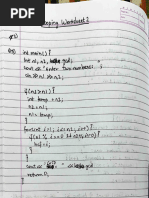 Looping Worksheet 2
int main() {
int n1, n2, gcd;
cout << "Enter two numbers: ";
cin >> n1 >> n2;
if (n2 > n1) {
int temp = n2;
n2 = n1;
n1 = temp;
}
for (int i=1; i<= n2; i++) {
if (n1 % i == 0 && n2 % i == 0) {
gcd = i;
}
}
return 0;
}